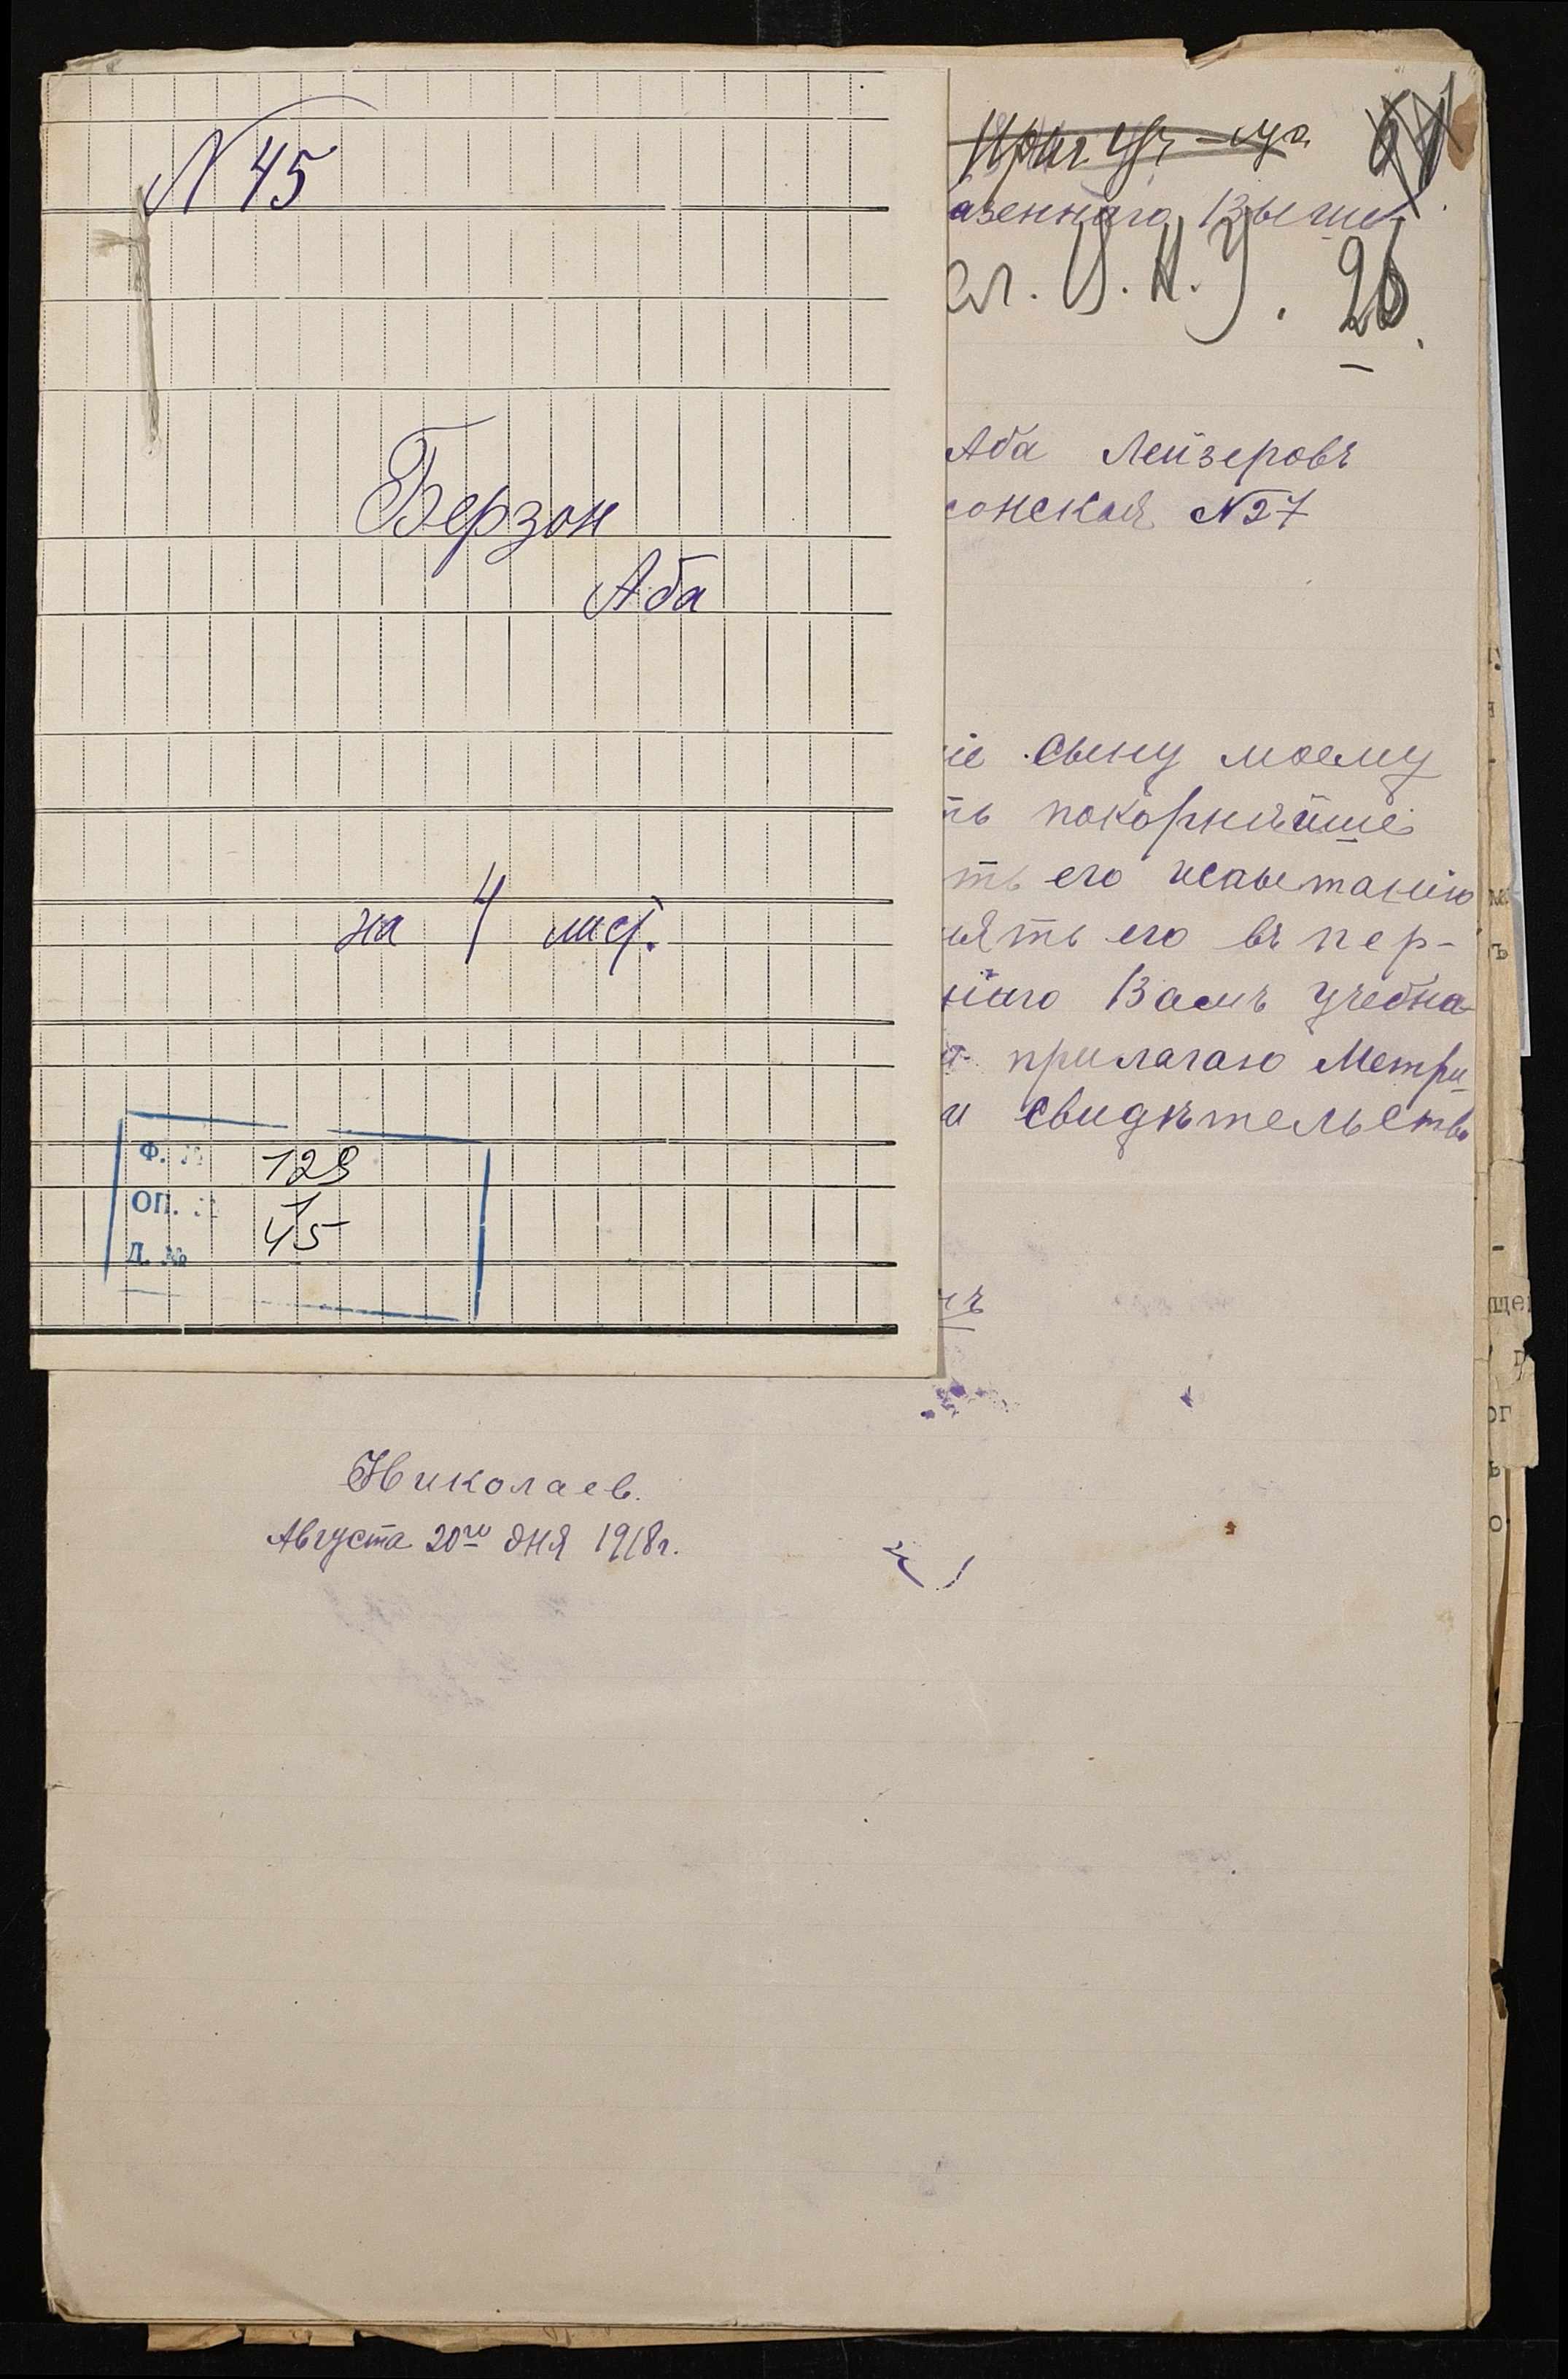 N 45
Берзон
Аба
на 4 лист.
Ф. №
129
ОП. №
1
Д. №
45
26.
азеннаго Высше-
Аба Лейзеровъ
сонская N 27
іе сыну моему
ть покорнѣйше
ть его испытанію
нять его въ пер-
наго Вамъ учебна-
прилагаю Метри-
и свидѣтельство
Николаев.
Августа 20го дня 1918 г.